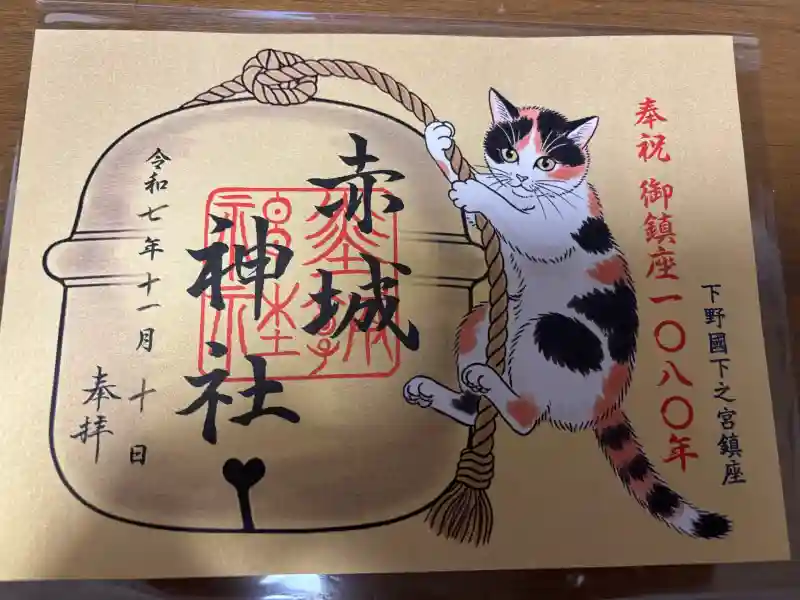 奉祝 御鎮座一〇八〇年
下野國下之宮鎮座
赤城
神社
令和七年十一月十日
奉拝